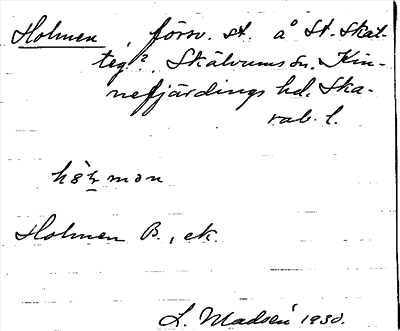 Holmen, försv. st. å St. Skat-
teg?, Skälvums sn. Kin-
nefjärdings hd. Ska-
rab. l.
Holmen B., ek.
L. Madsén 1930.